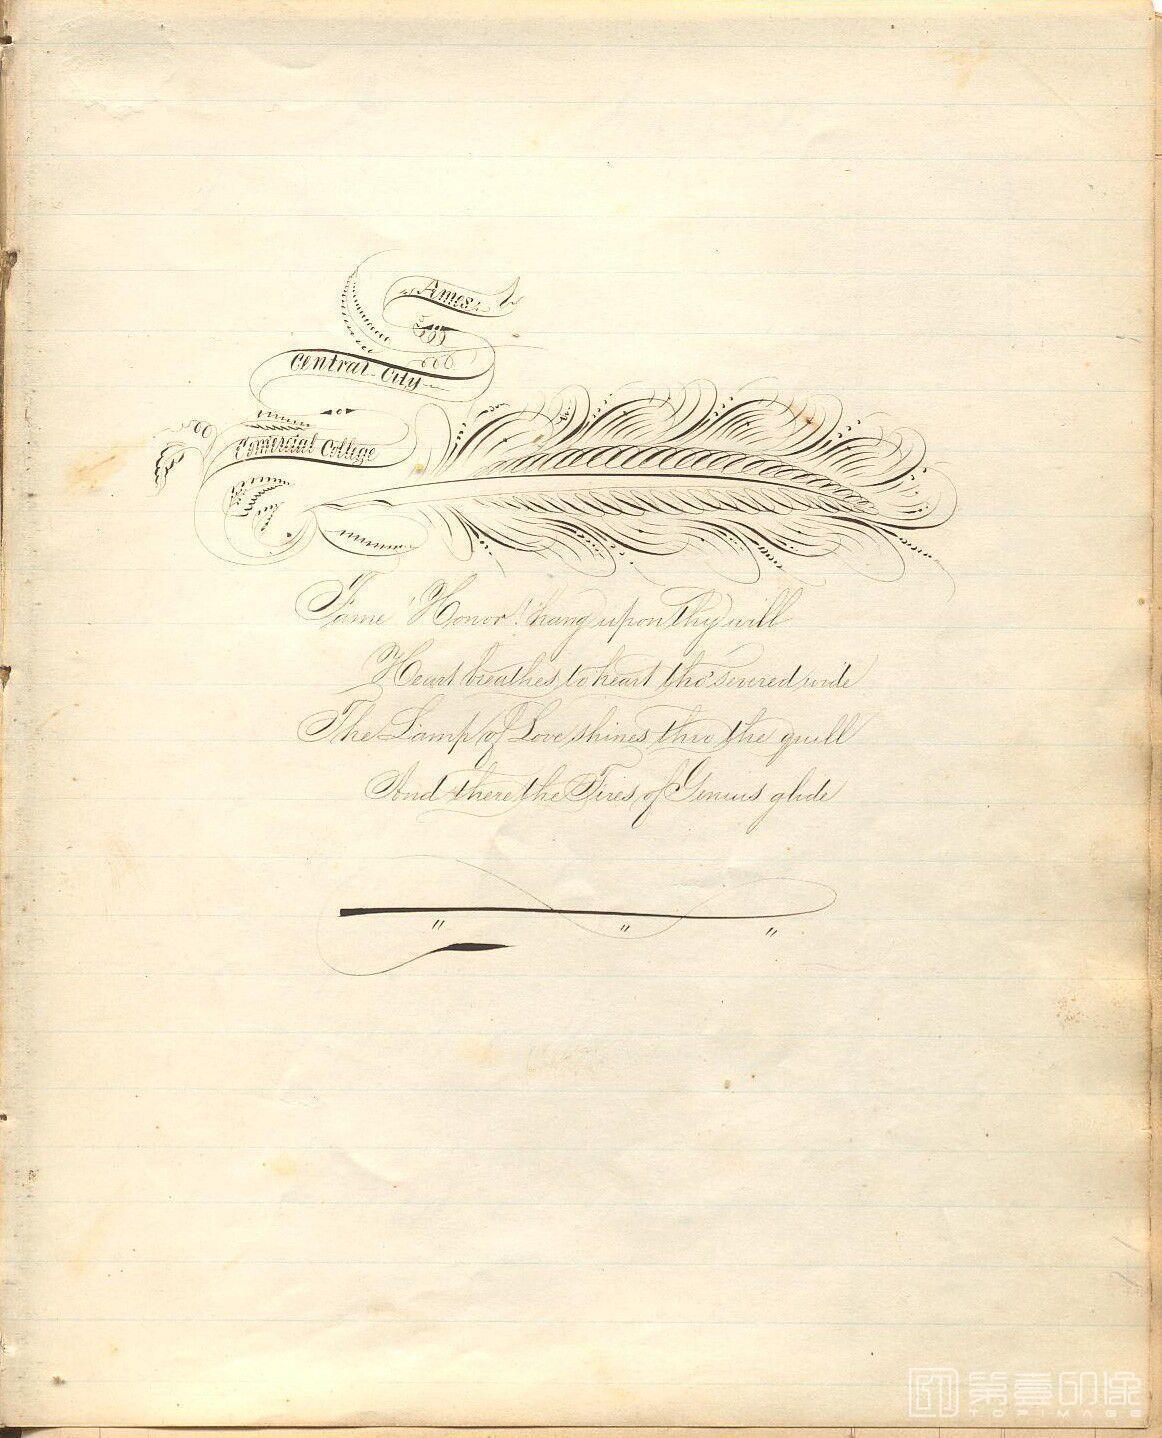 Ames
Central City
Comercial College
Fame! Honor! hang upon thy will
Heart breathes to heart tho' severed wide
The Lamp of Love shines thro the quill
And there the Fires of Genius glide
" " "
第壹印像
TOPIMAGE